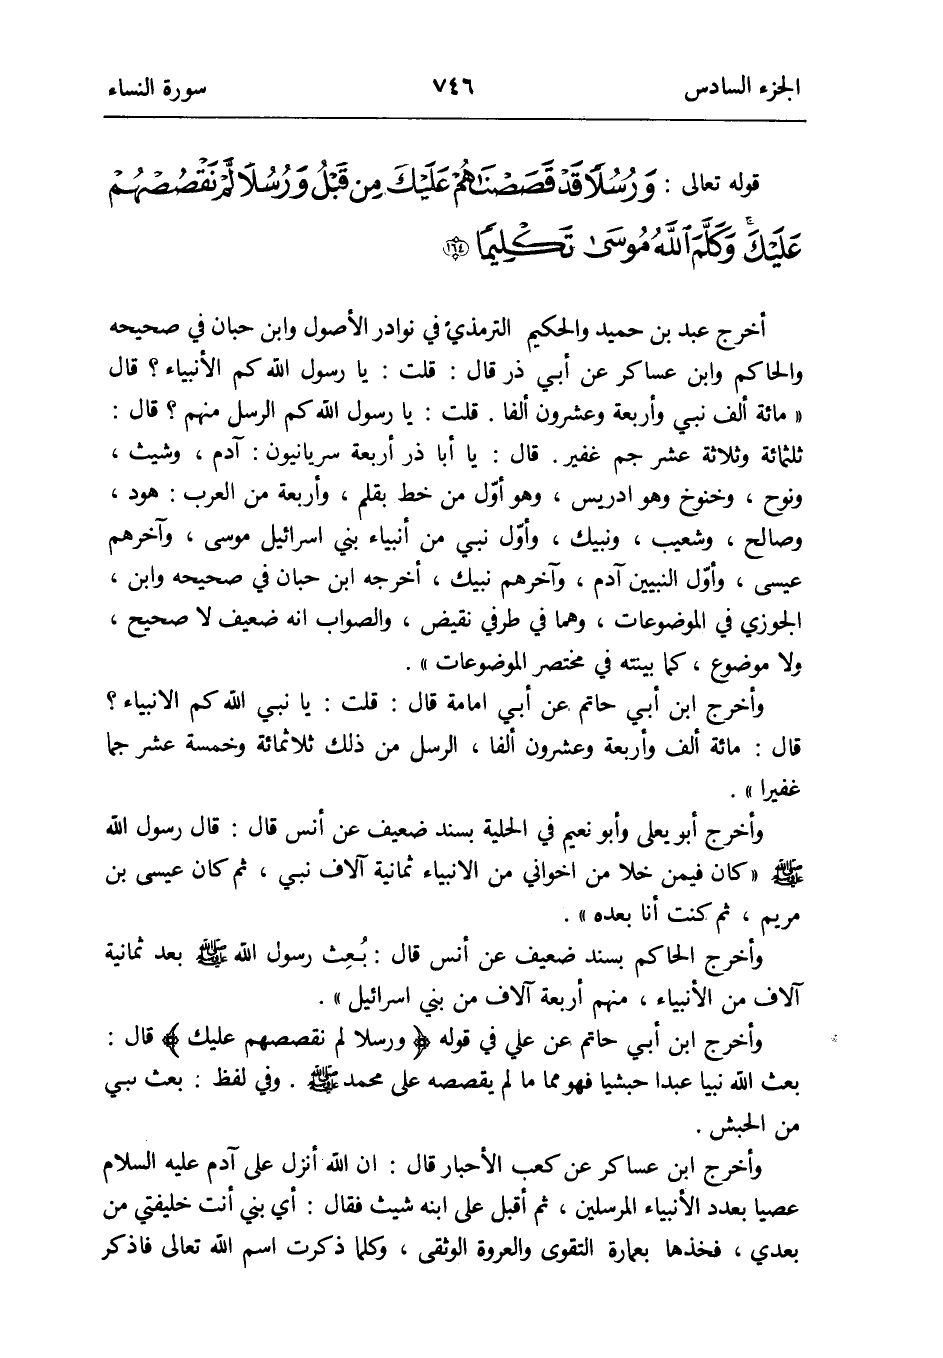 الجزء السادس ٧٤٦ سورة النساء
قوله تعالى : وَرُسُلًا قَدْ قَصَصْنَاهُمْ عَلَيْكَ مِن قَبْلُ وَرُسُلًا لَّمْ نَقْصُصْهُمْ
عَلَيْكَ ۚ وَكَلَّمَ ٱللَّهُ مُوسَىٰ تَكْلِيمًا ﴿١٦٤﴾
أخرج عبد بن حميد والحكيم الترمذي في نوادر الأصول وابن حبان في صحيحه
والحاكم وابن عساكر عن أبي ذر قال : قلت : يا رسول الله كم الأنبياء ؟ قال
« مائة ألف نبي وأربعة وعشرون ألفا . قلت : يا رسول الله كم الرسل منهم ؟ قال :
ثلثمائة وثلاثة عشر جم غفير . قال : يا أبا ذر أربعة سريانيون : آدم ، وشيث ،
ونوح ، وخنوخ وهو ادريس ، وهو أوّل من خط بقلم ، وأربعة من العرب : هود ،
وصالح ، وشعيب ، ونبيك ، وأوّل نبي من أنبياء بني اسرائيل موسى ، وآخرهم
عيسى ، وأوّل النبيين آدم ، وآخرهم نبيك ، أخرجه ابن حبان في صحيحه وابن ،
الجوزي في الموضوعات ، وهما في طرفي نقيض ، والصواب انه ضعيف لا صحيح ،
ولا موضوع ، كما بينته في مختصر الموضوعات » .
وأخرج ابن أبي حاتم عن أبي امامة قال : قلت : يا نبي الله كم الانبياء ؟
قال : مائة ألف وأربعة وعشرون ألفا ، الرسل من ذلك ثلاثمائة وخمسة عشر جما
غفيرا » .
وأخرج أبو يعلى وأبو نعيم في الحلية بسند ضعيف عن أنس قال : قال رسول الله
ﷺ « كان فيمن خلا من اخواني من الانبياء ثمانية آلاف نبي ، ثم كان عيسى بن
مريم ، ثم كنت أنا بعده » .
وأخرج الحاكم بسند ضعيف عن أنس قال : بُعِث رسول الله ﷺ بعد ثمانية
آلاف من الأنبياء ، منهم أربعة آلاف من بني اسرائيل » .
وأخرج ابن أبي حاتم عن علي في قوله ﴿ ورسلا لم نقصصهم عليك ﴾ قال :
بعث الله نبيا عبدا حبشيا فهو مما لم يقصصه على محمد ﷺ . وفي لفظ : بعث نبي
من الحبش .
وأخرج ابن عساكر عن كعب الأحبار قال : ان الله أنزل على آدم عليه السلام
عصيا بعدد الأنبياء المرسلين ، ثم أقبل على ابنه شيث فقال : أي بني أنت خليفتي من
بعدي ، فخذها بعمارة التقوى والعروة الوثقى ، وكلما ذكرت اسم الله تعالى فاذكر